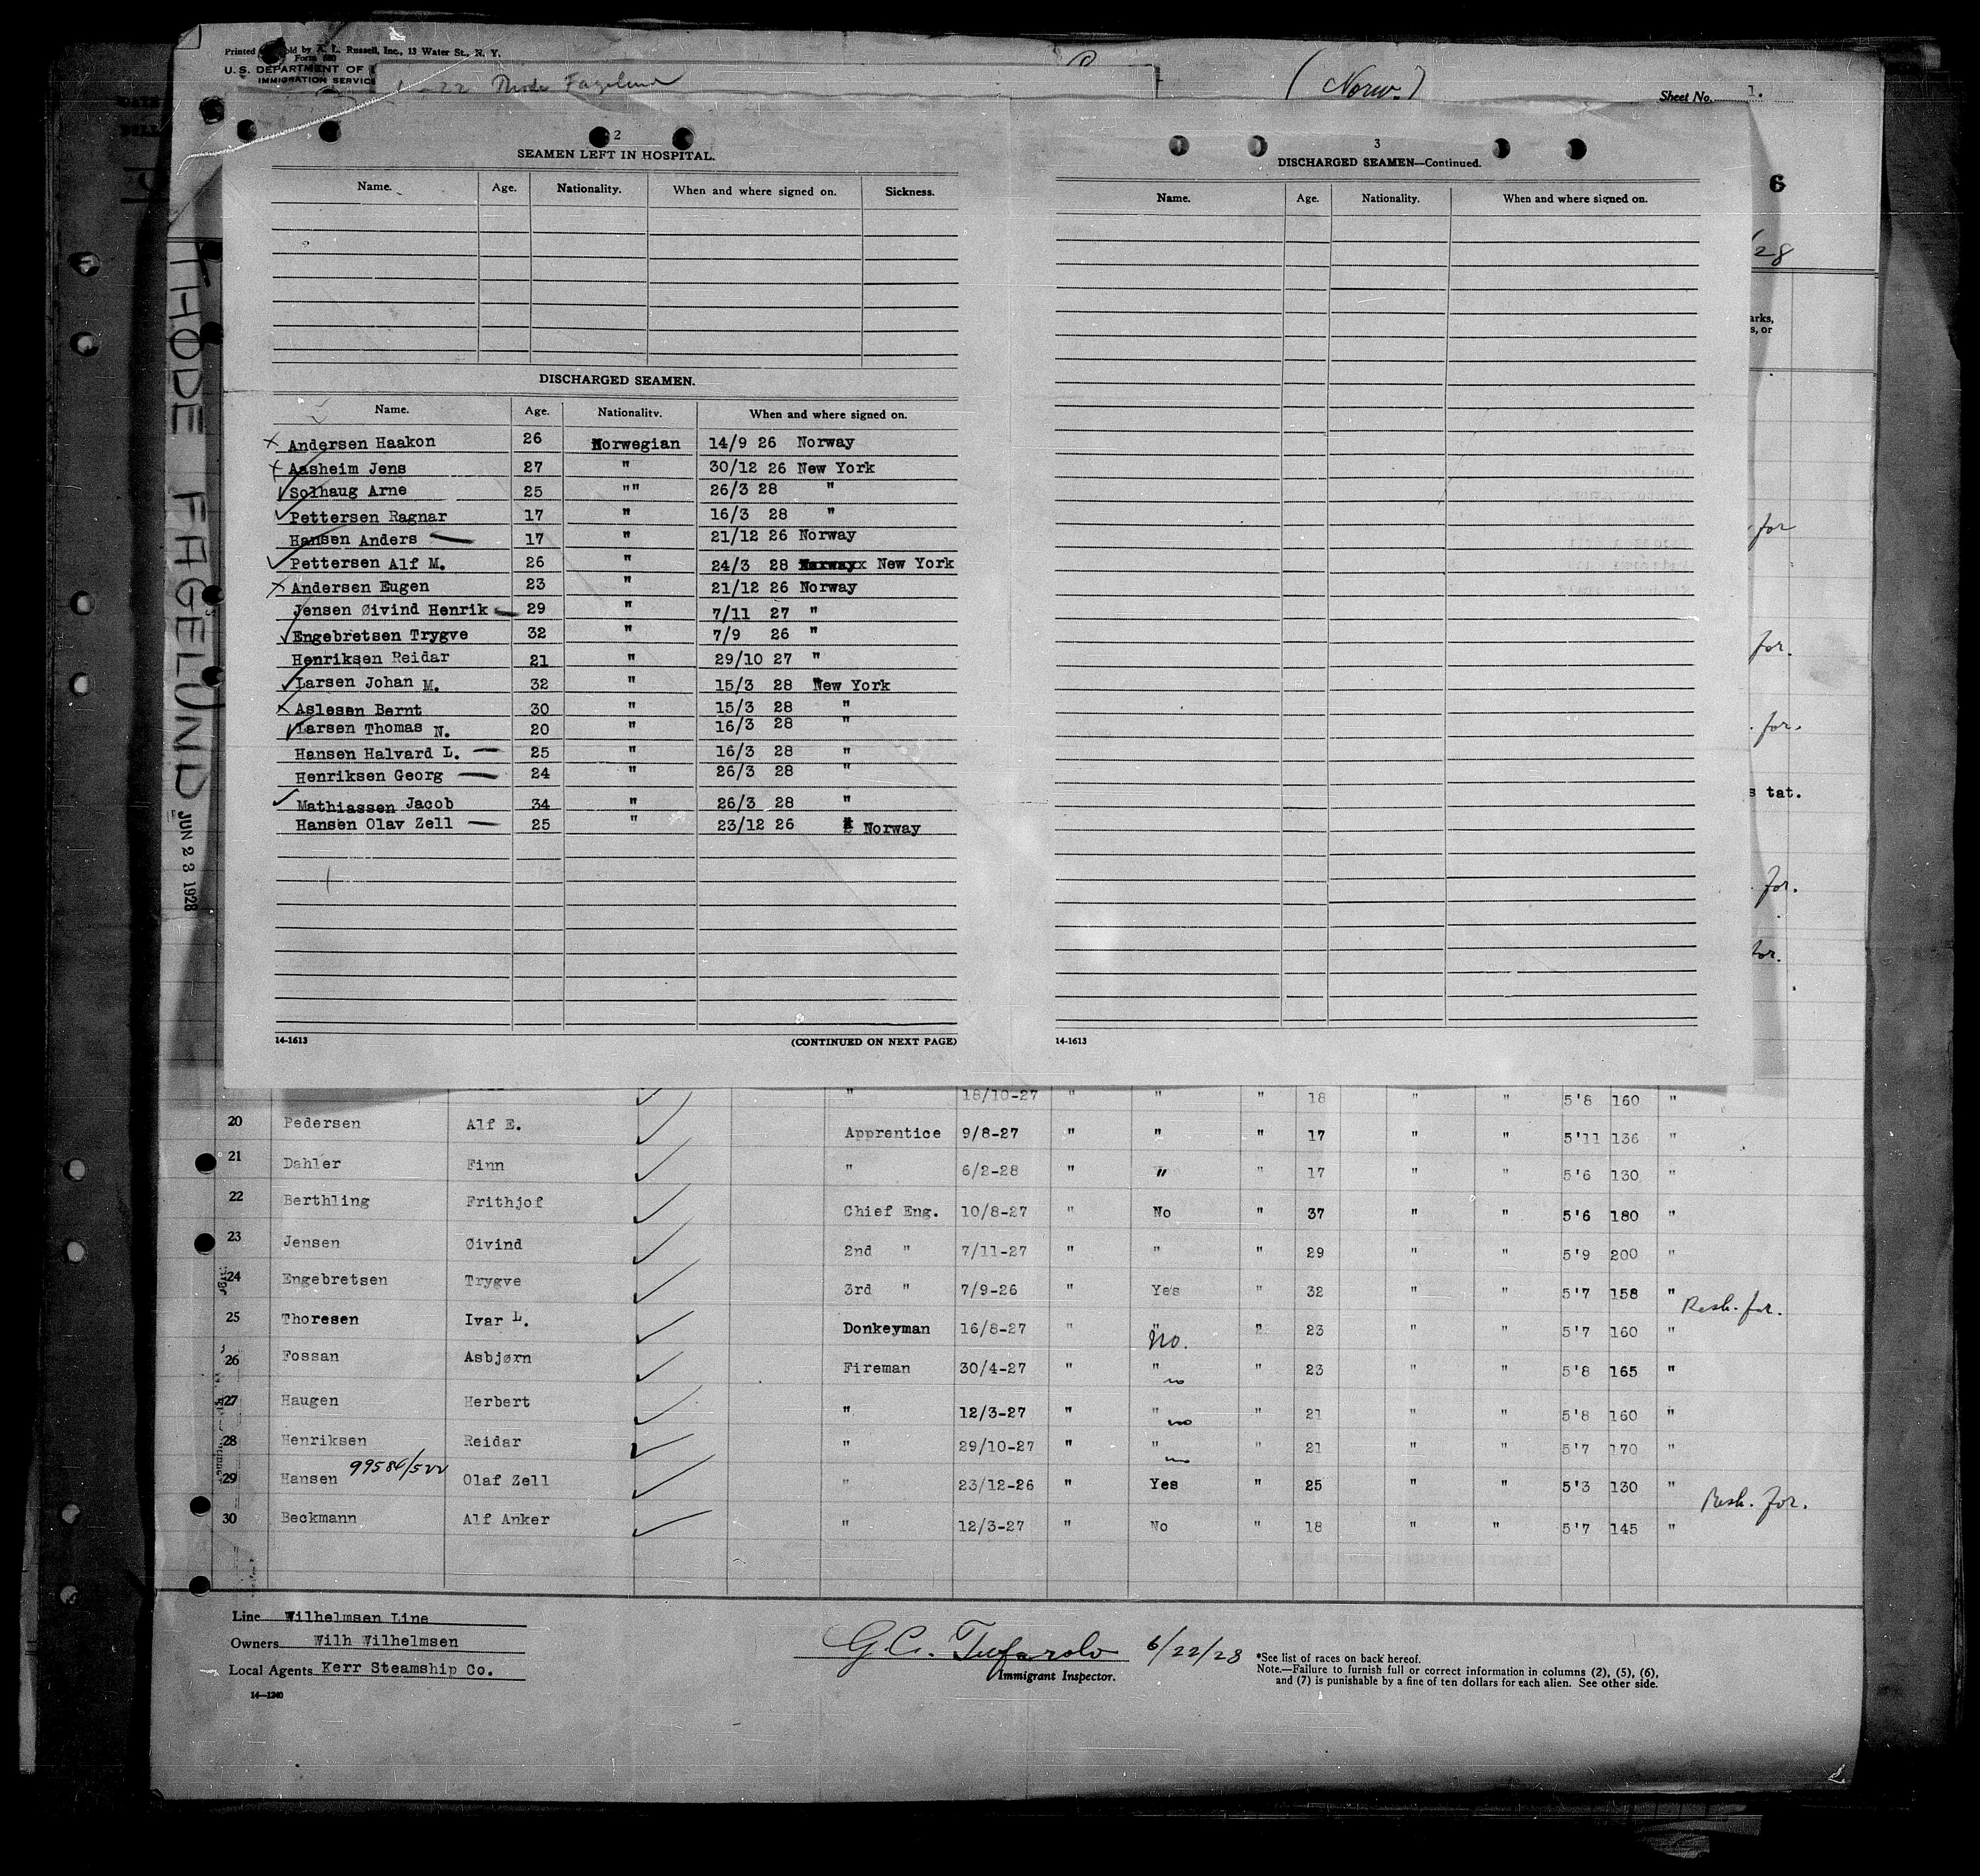 Printed old by A. L. Russell, Inc., 13 Water St., N. Y.
Form 680
U. S. DEPARTMENT OF
IMMIGRATION SERVICE
22 Thode Fagelund
(Norw.)
Sheet No. 1.
6
/28
arks,
s, or
THODE FAGELUND JUN 23 1928
2
SEAMEN LEFT IN HOSPITAL.
Name. Age. Nationality. When and where signed on. Sickness.
DISCHARGED SEAMEN.
Name. Age. Nationality. When and where signed on.
Andersen Haakon 26 Norwegian 14/9 26 Norway
Aasheim Jens 27 " 30/12 26 New York
Solhaug Arne 25 "" 26/3 28 "
Pettersen Ragnar 17 " 16/3 28 "
Hansen Anders 17 " 21/12 26 Norway
Pettersen Alf M. 26 " 24/3 28 New York
Andersen Eugen 23 " 21/12 26 Norway
Jensen Øivind Henrik 29 " 7/11 27 "
Engebretsen Trygve 32 " 7/9 26 "
Henriksen Reidar 21 " 29/10 27 "
Larsen Johan M. 32 " 15/3 28 New York
Aslesen Bernt 30 " 15/3 28 "
Larsen Thomas N. 20 " 16/3 28 "
Hansen Halvard L. 25 " 16/3 28 "
Henriksen Georg 24 " 26/3 28 "
Mathiassen Jacob 34 " 26/3 28 "
Hansen Olav Zell 25 " 23/12 26 Norway
14-1613 (CONTINUED ON NEXT PAGE)
3
DISCHARGED SEAMEN—Continued.
Name. Age. Nationality. When and where signed on.
14-1613
for
for.
for.
s tat.
for.
for.
" 18/10-27 " " " 18 " " 5'8 160 "
20 Pedersen Alf E. Apprentice 9/8-27 " " " 17 " " 5'11 136 "
21 Dahler Finn " 6/2-28 " " " 17 " " 5'6 130 "
22 Berthling Frithjof Chief Eng. 10/8-27 " No " 37 " " 5'6 180 "
23 Jensen Øivind 2nd " 7/11-27 " " " 29 " " 5'9 200 "
24 Engebretsen Trygve 3rd " 7/9-26 " Yes " 32 " " 5'7 158 " Resh. for.
25 Thoresen Ivar L. Donkeyman 16/8-27 " " No. " 23 " " 5'7 160 "
26 Fossan Asbjørn Fireman 30/4-27 " " no " 23 " " 5'8 165 "
27 Haugen Herbert " 12/3-27 " " no " 21 " " 5'8 160 "
28 Henriksen Reidar " 29/10-27 " " no " 21 " " 5'7 170 "
29 Hansen 99586/522 Olaf Zell " 23/12-26 " Yes " 25 " " 5'3 130 " Resh. for.
30 Beckmann Alf Anker " 12/3-27 " No " 18 " " 5'7 145 "
Line Wilhelmsen Line
Owners Wilh Wilhelmsen
Local Agents Kerr Steamship Co.
14—1240
G.C. Tufarolo 6/22/28
Immigrant Inspector.
*See list of races on back hereof.
Note.—Failure to furnish full or correct information in columns (2), (5), (6),
and (7) is punishable by a fine of ten dollars for each alien. See other side.